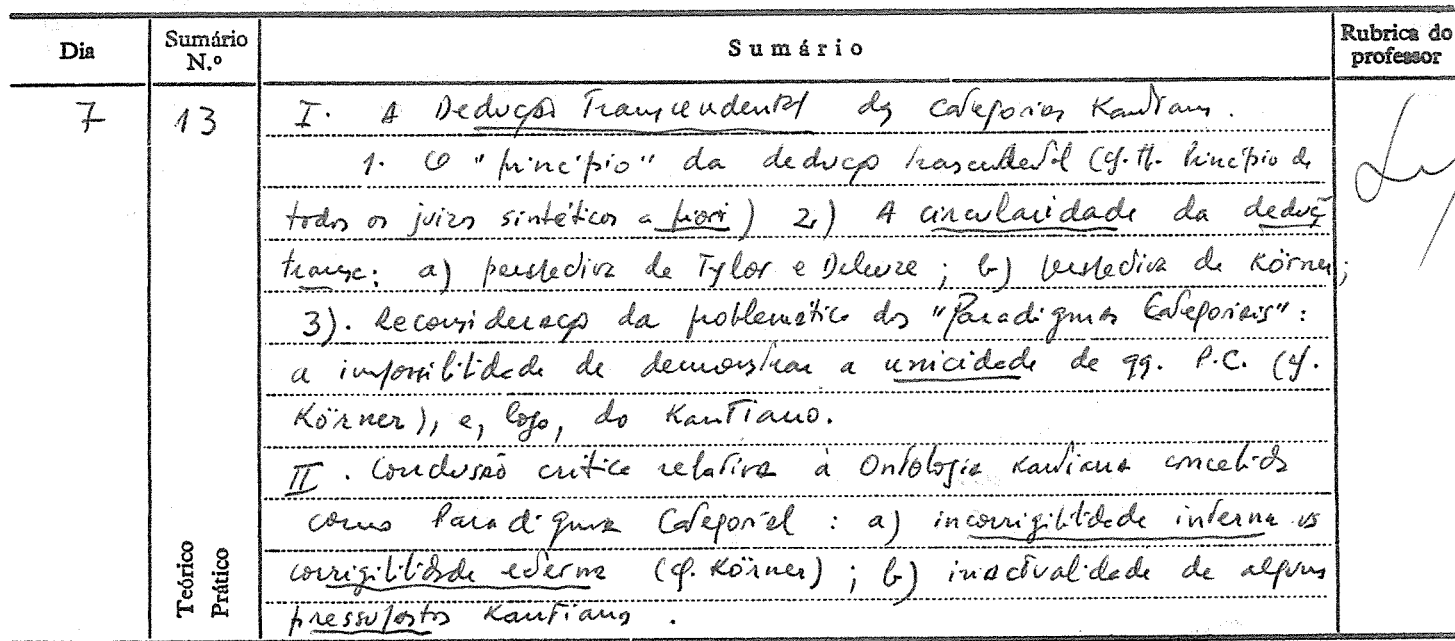 Dia Sumário N.º Sumário Rubrica do professor
7 13 I. A Dedução Transcendental das categorias Kantianas.
1. O "princípio" da dedução transcendental (cf. tb. Princípio de
todos os juízos sintéticos a priori) 2.) A circularidade da deduç
transc: a) perspectiva de Tylor e Deleuze; b) perspectiva de Körner;
3). Reconsideração da problemática dos "Paradigmas Categoriais":
a impossibilidade de demonstrar a unicidade de qq. P.C. (cf.
Körner), e, logo, do Kantiano.
II. Conclusão crítica relativa à Ontologia Kantiana concebida
como Paradigma Categorial: a) incorrigibilidade interna vs
corrigibilidade externa (cf. Körner); b) inactualidade de alguns
pressupostos Kantianos.
Teórico
Prático